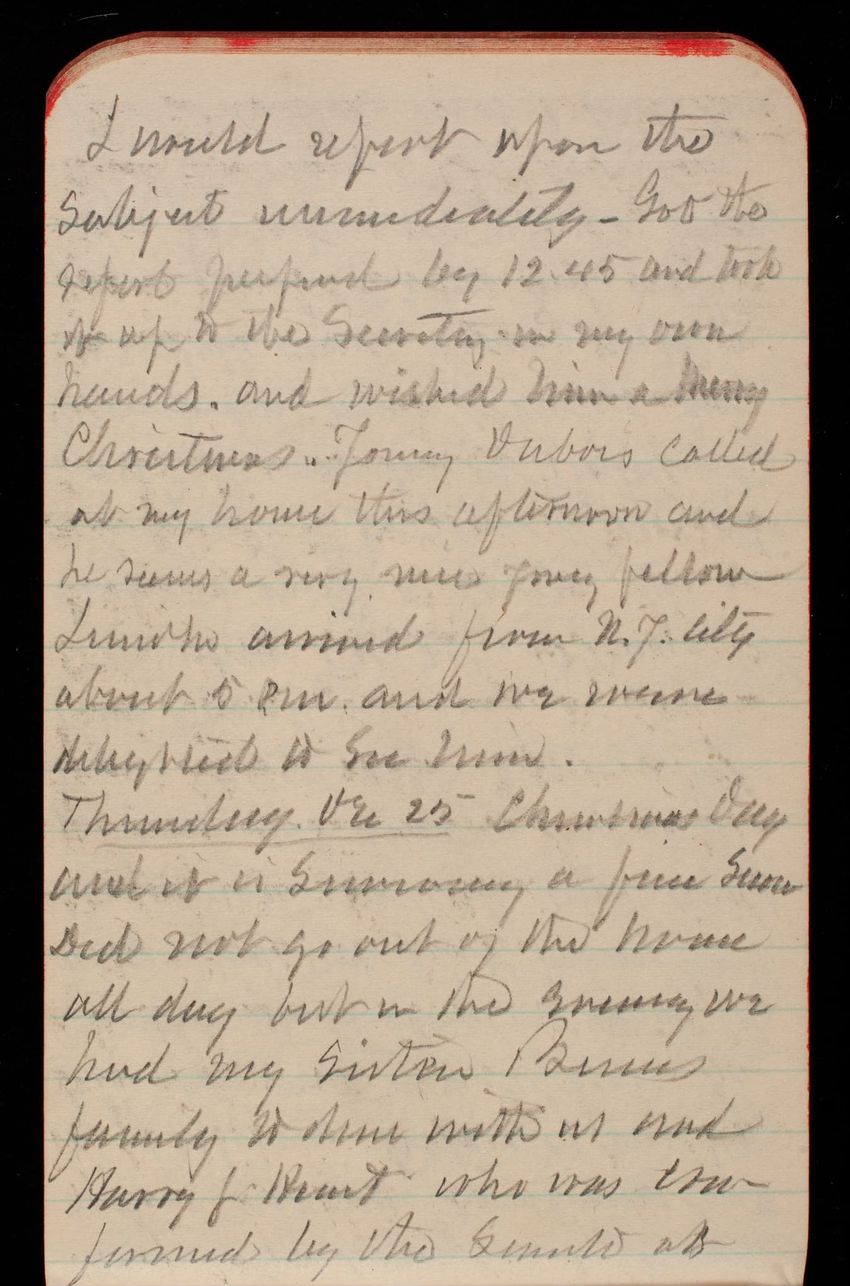 I would report upon the
Subject immediately - Got the
report prepared by 12.45 and took
it up to the Secretary in my own
hands. and wished him a Merry
Christmas. Young Dubois called
at my house this afternoon and
he seems a very nice young fellow
arrived from N.Y. City
about 5 Pm. and we were
delighted to See him.
Thursday. Dec 25 Christmas Day
and it is Snowing a fine Snow
Did not go out of the house
all day but in the evening we
had my Sister
family to dine with us and
Harry who was con
firmed by the Senate as